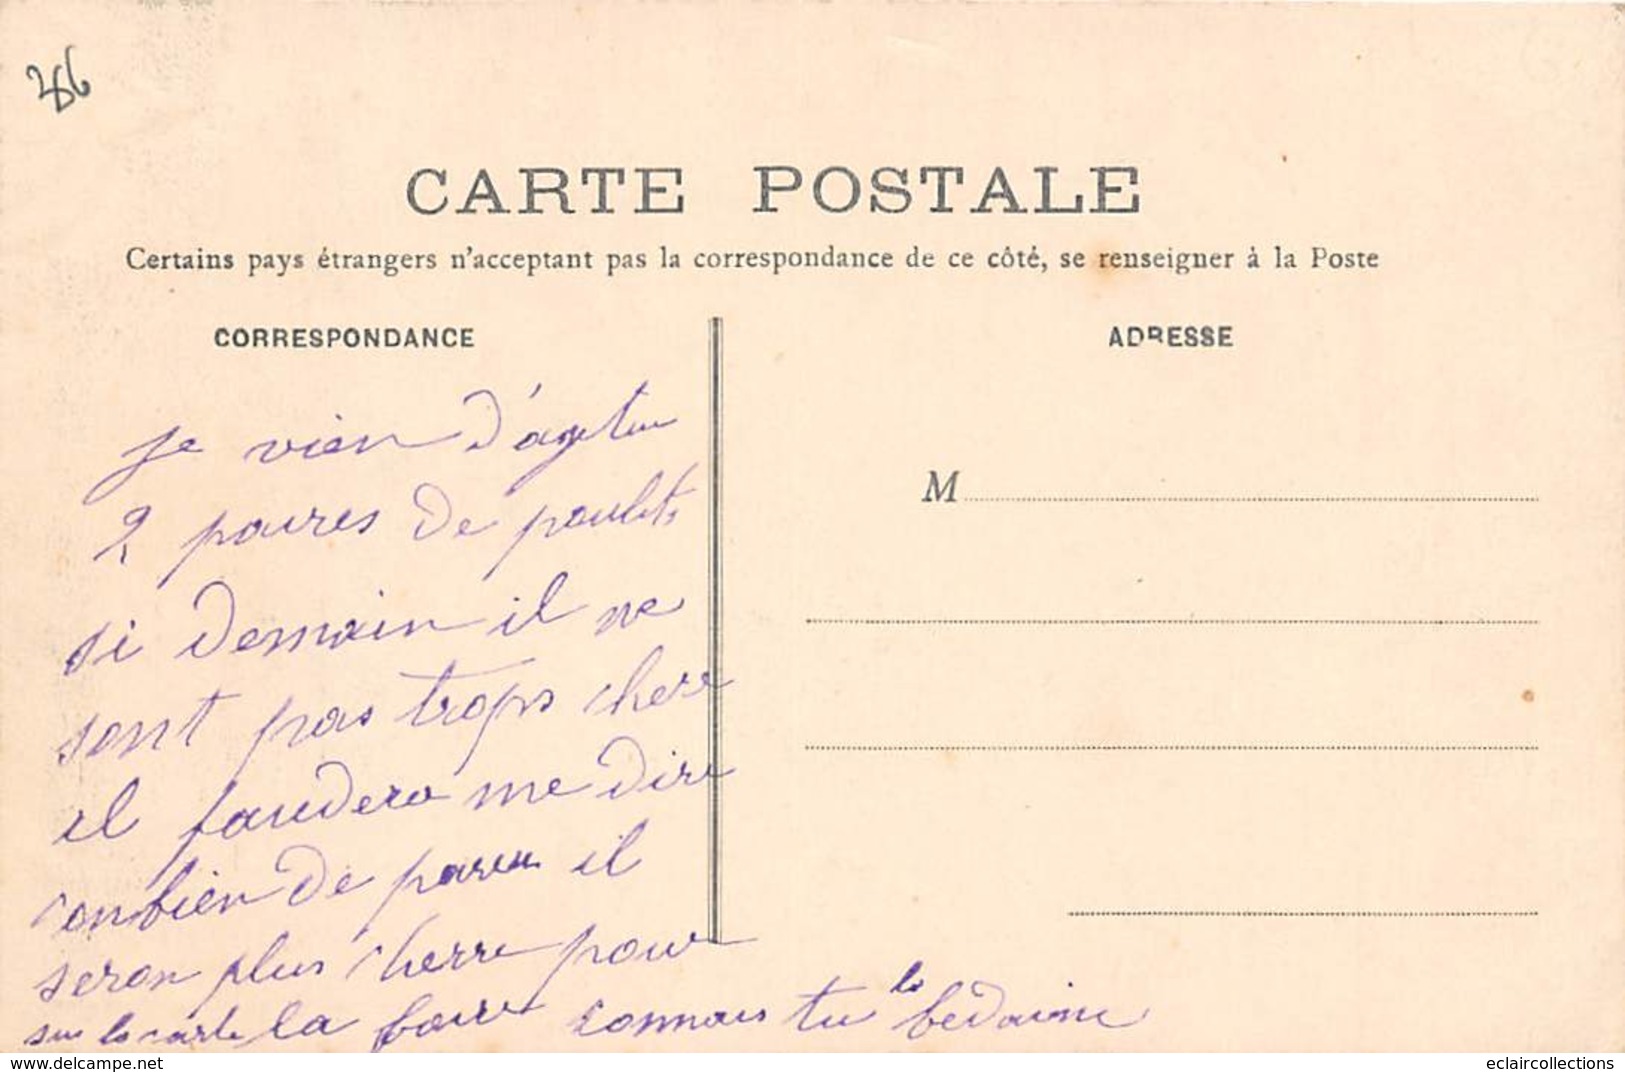 CARTE POSTALE
Certains pays étrangers n'acceptent pas la correspondance de ce côté, se renseigner à la Poste
CORRESPONDANCE
ADRESSE
M
je vien d'agetter
2 paires de poulets
si demain il ne
sont pas trops cherr
il faudera me dire
conbien de paires il
seron plus cherre pour
sur la carte la foire connais tu la bedaine
eclaircollections